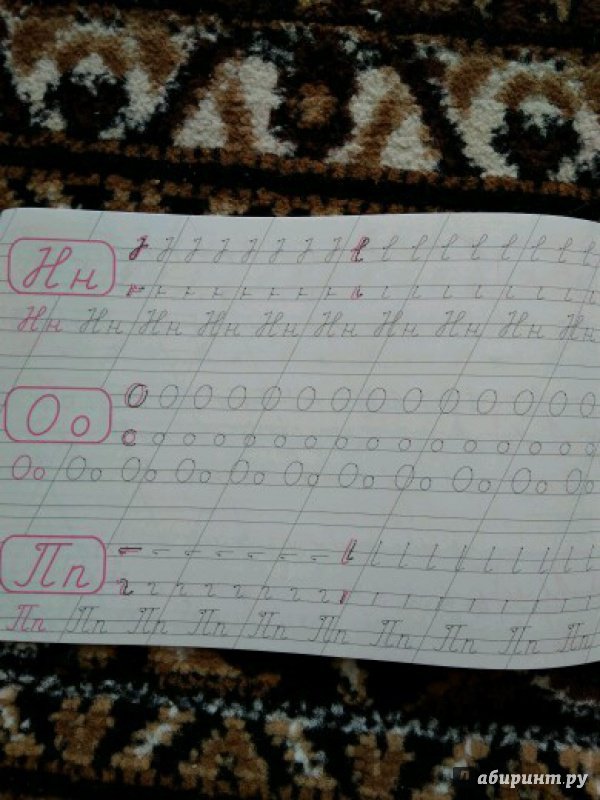 Нн
Нн Нн Нн Нн Нн Нн Нн Нн Нн Нн
Оо
О О О О О О О О О О О О О О
о о о о о о о о о о о о о о о о
Оо Оо Оо Оо Оо Оо Оо Оо Оо Оо
Пп
Пп Пп Пп Пп Пп Пп Пп Пп Пп Пп
абиринт.ру